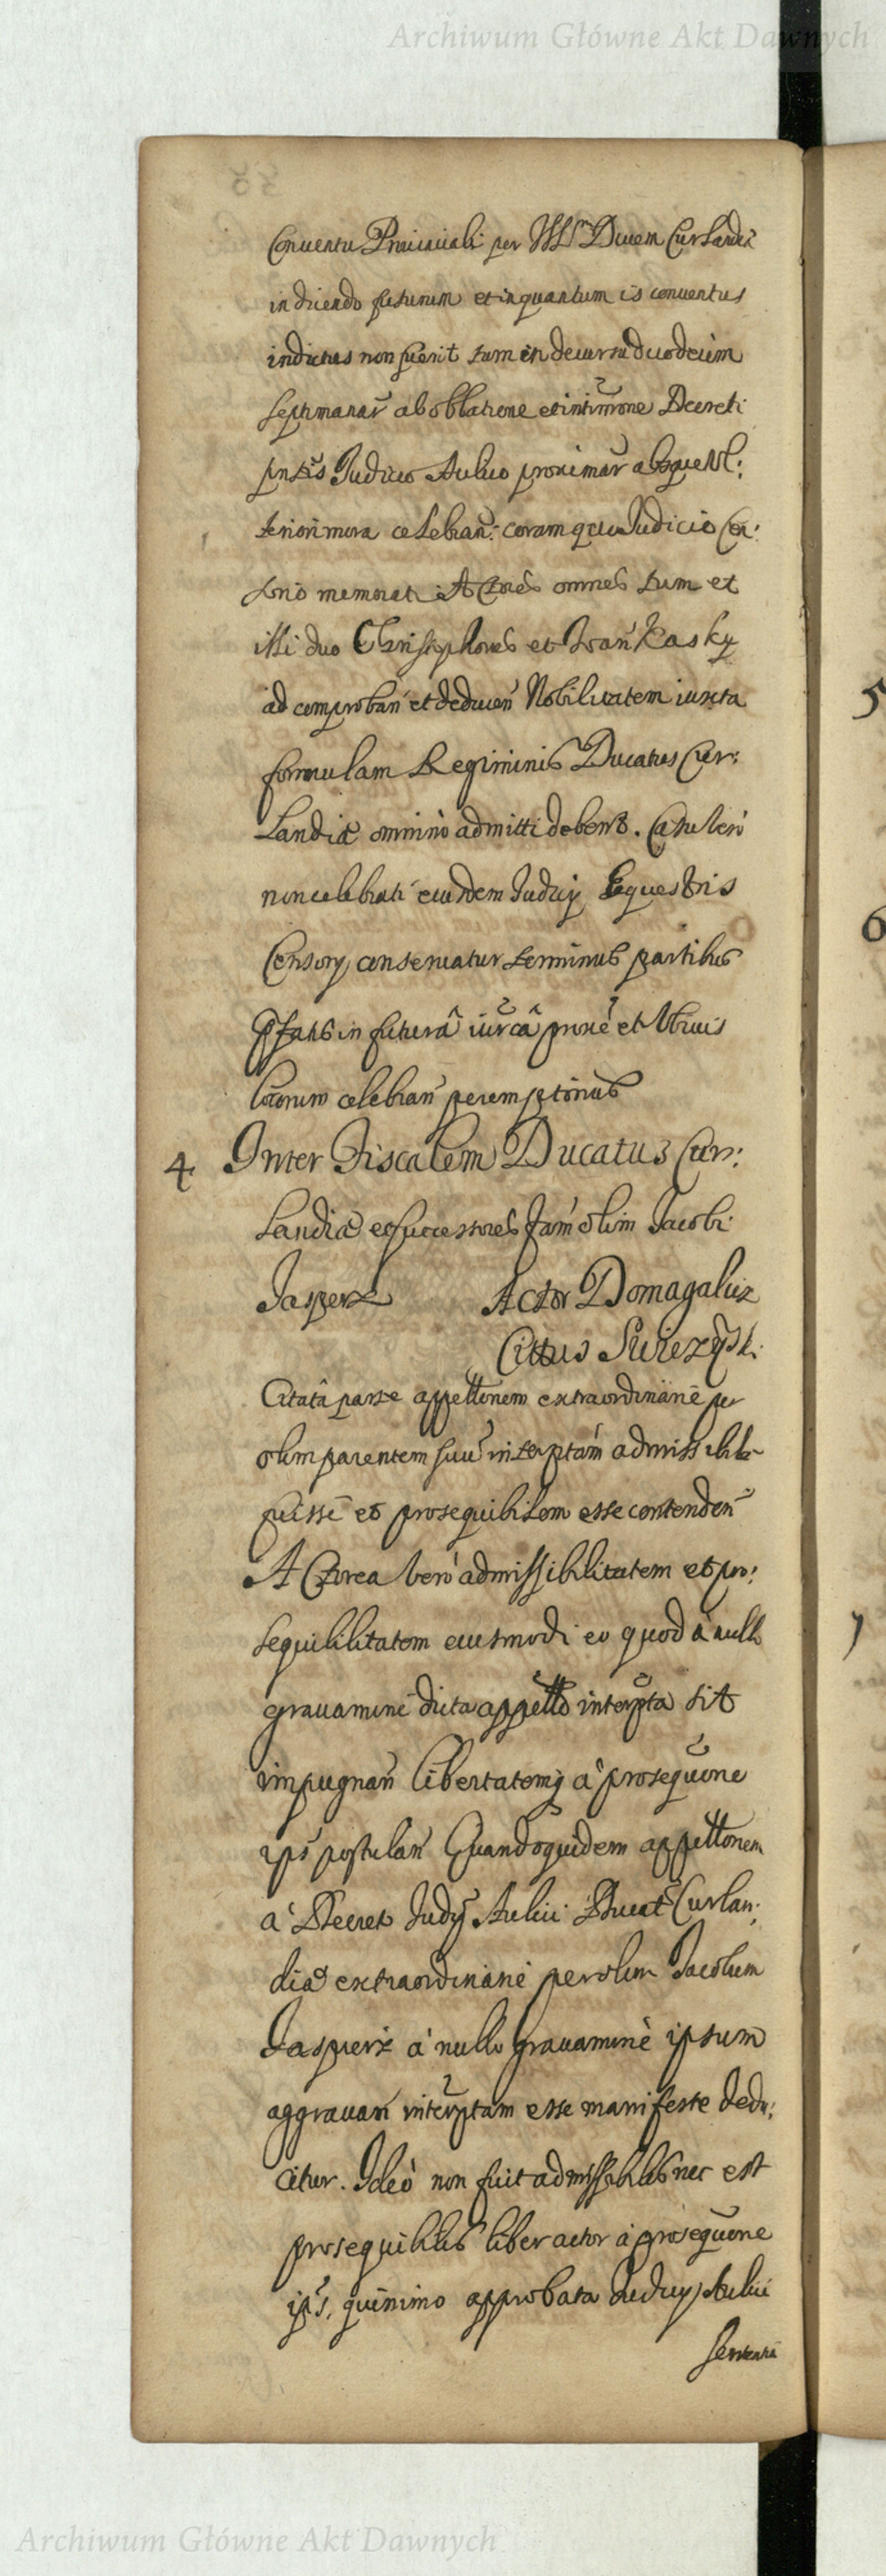 Archiwum Główne Akt Dawnych
Conventu Provinciali per Illm Ducem Curlandiæ
indicendo futurum et inquantum is conventus
indictus non fuerit tum in decursu duodecim
septimanar̃ ab oblatione et intim̃one Decreti
pntĩs Judicio Aulico proximar̃ absque Vl:
teriori mora celebran: coram quo Judicio Cen:
sorio memorati Actores omnes tum et
illi duo Christophores et Iwan Kasky
ad comproban et deducen Nobilitatem iuxta
formulam Regiminis Ducatus Cur:
landiæ omnino admitti debent. Casu vero
non celebrati eiusdem Judicij Equestris
Censorij conservatur terminus partibus
pfatis in futurâ iurcâ proxè et Vbivis
locorum celebran peremptorius
4 Inter Fiscalem Ducatus Cur:
landiæ et successores Jam olim Jacobi
Jasperz Actor Domagalicz
Cittus Swiezỹski
Citatâ parte appellonem extraordinariè per
olim parentem suũ interptam admissibilẽ
fuisse et prosequibilem esse contenden
Actorea verò admissibilitatem et pro:
sequibilitatem eiusmodi eo quod à nullo
gravamine dicta appello interpta sit
impugnan libertatemq à prosequone
ips postulan Quandoquidem appellonem
à Decreto Judij Aulici Ducat Curlan:
diæ extraordinariè per olim Jacobum
Jasperz à nullo gravaminè ipsum
aggravan interptam esse manifeste dedu:
citur. Ideò non fuit admissibilis nec est
prosequibilis liber actor à prosequone
ips, quinimo approbata Judicij Aulici
Sententia
5
6
7
Archiwum Główne Akt Dawnych